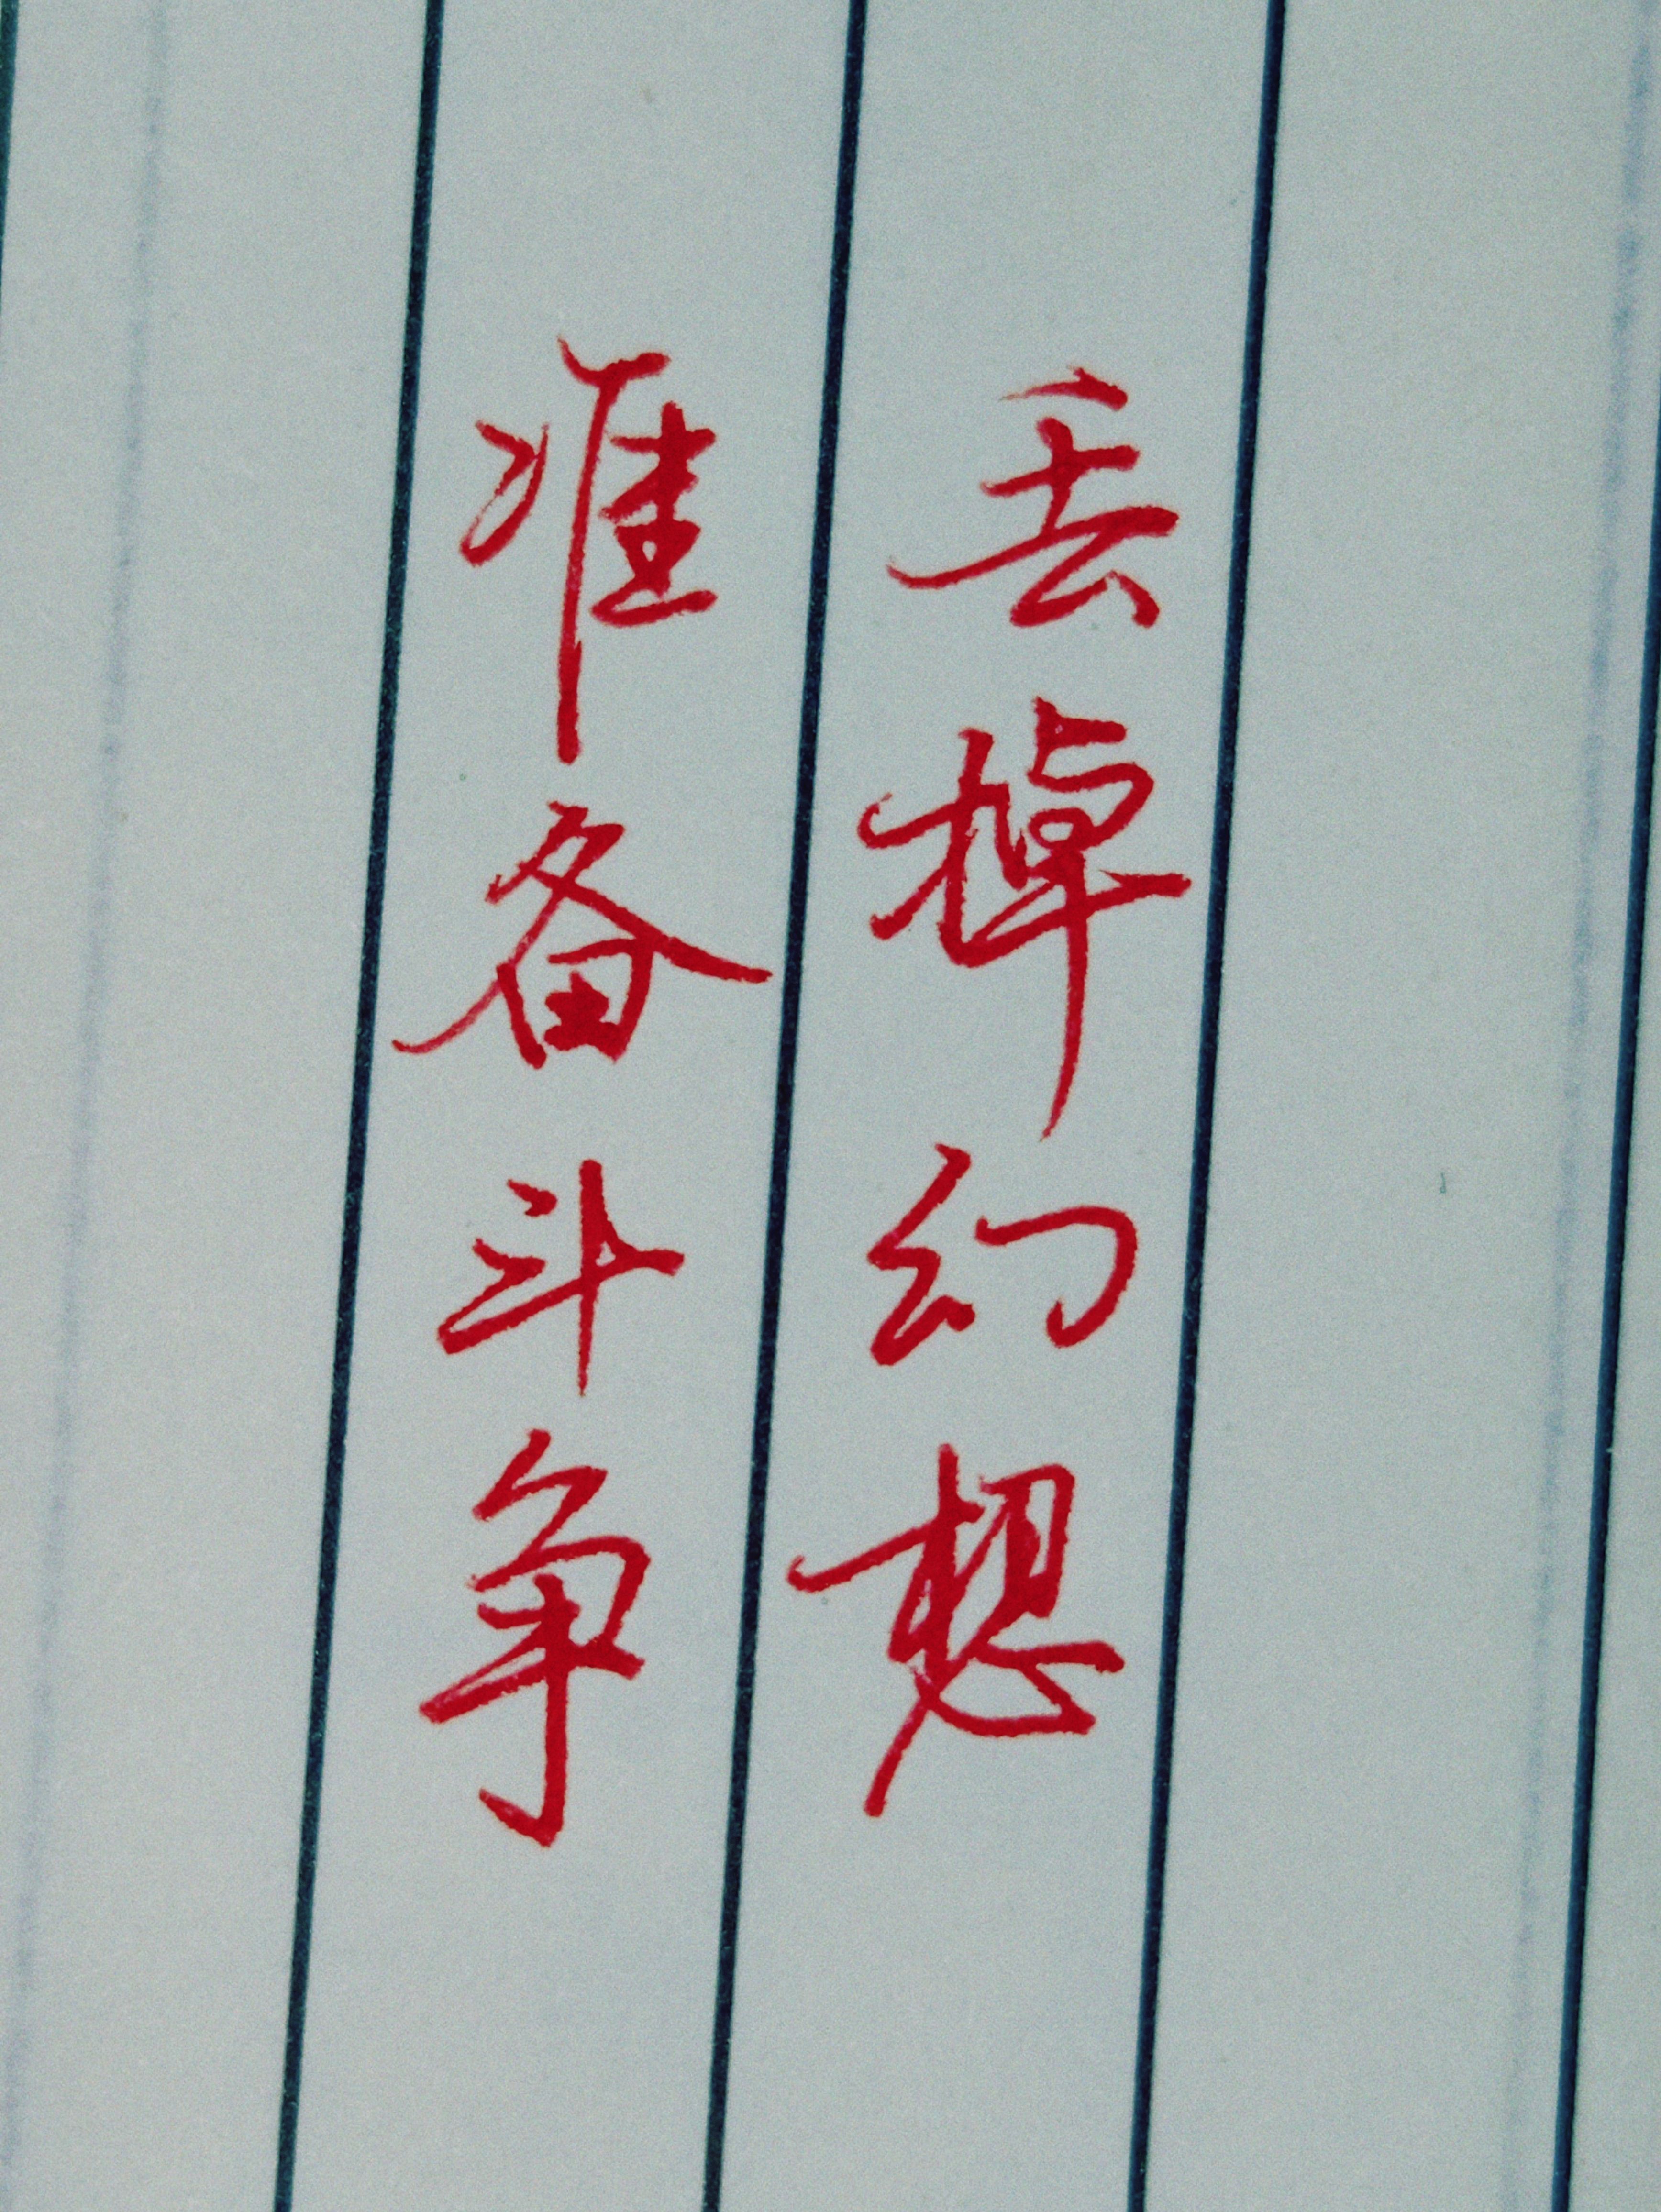 丢掉幻想
准备斗争